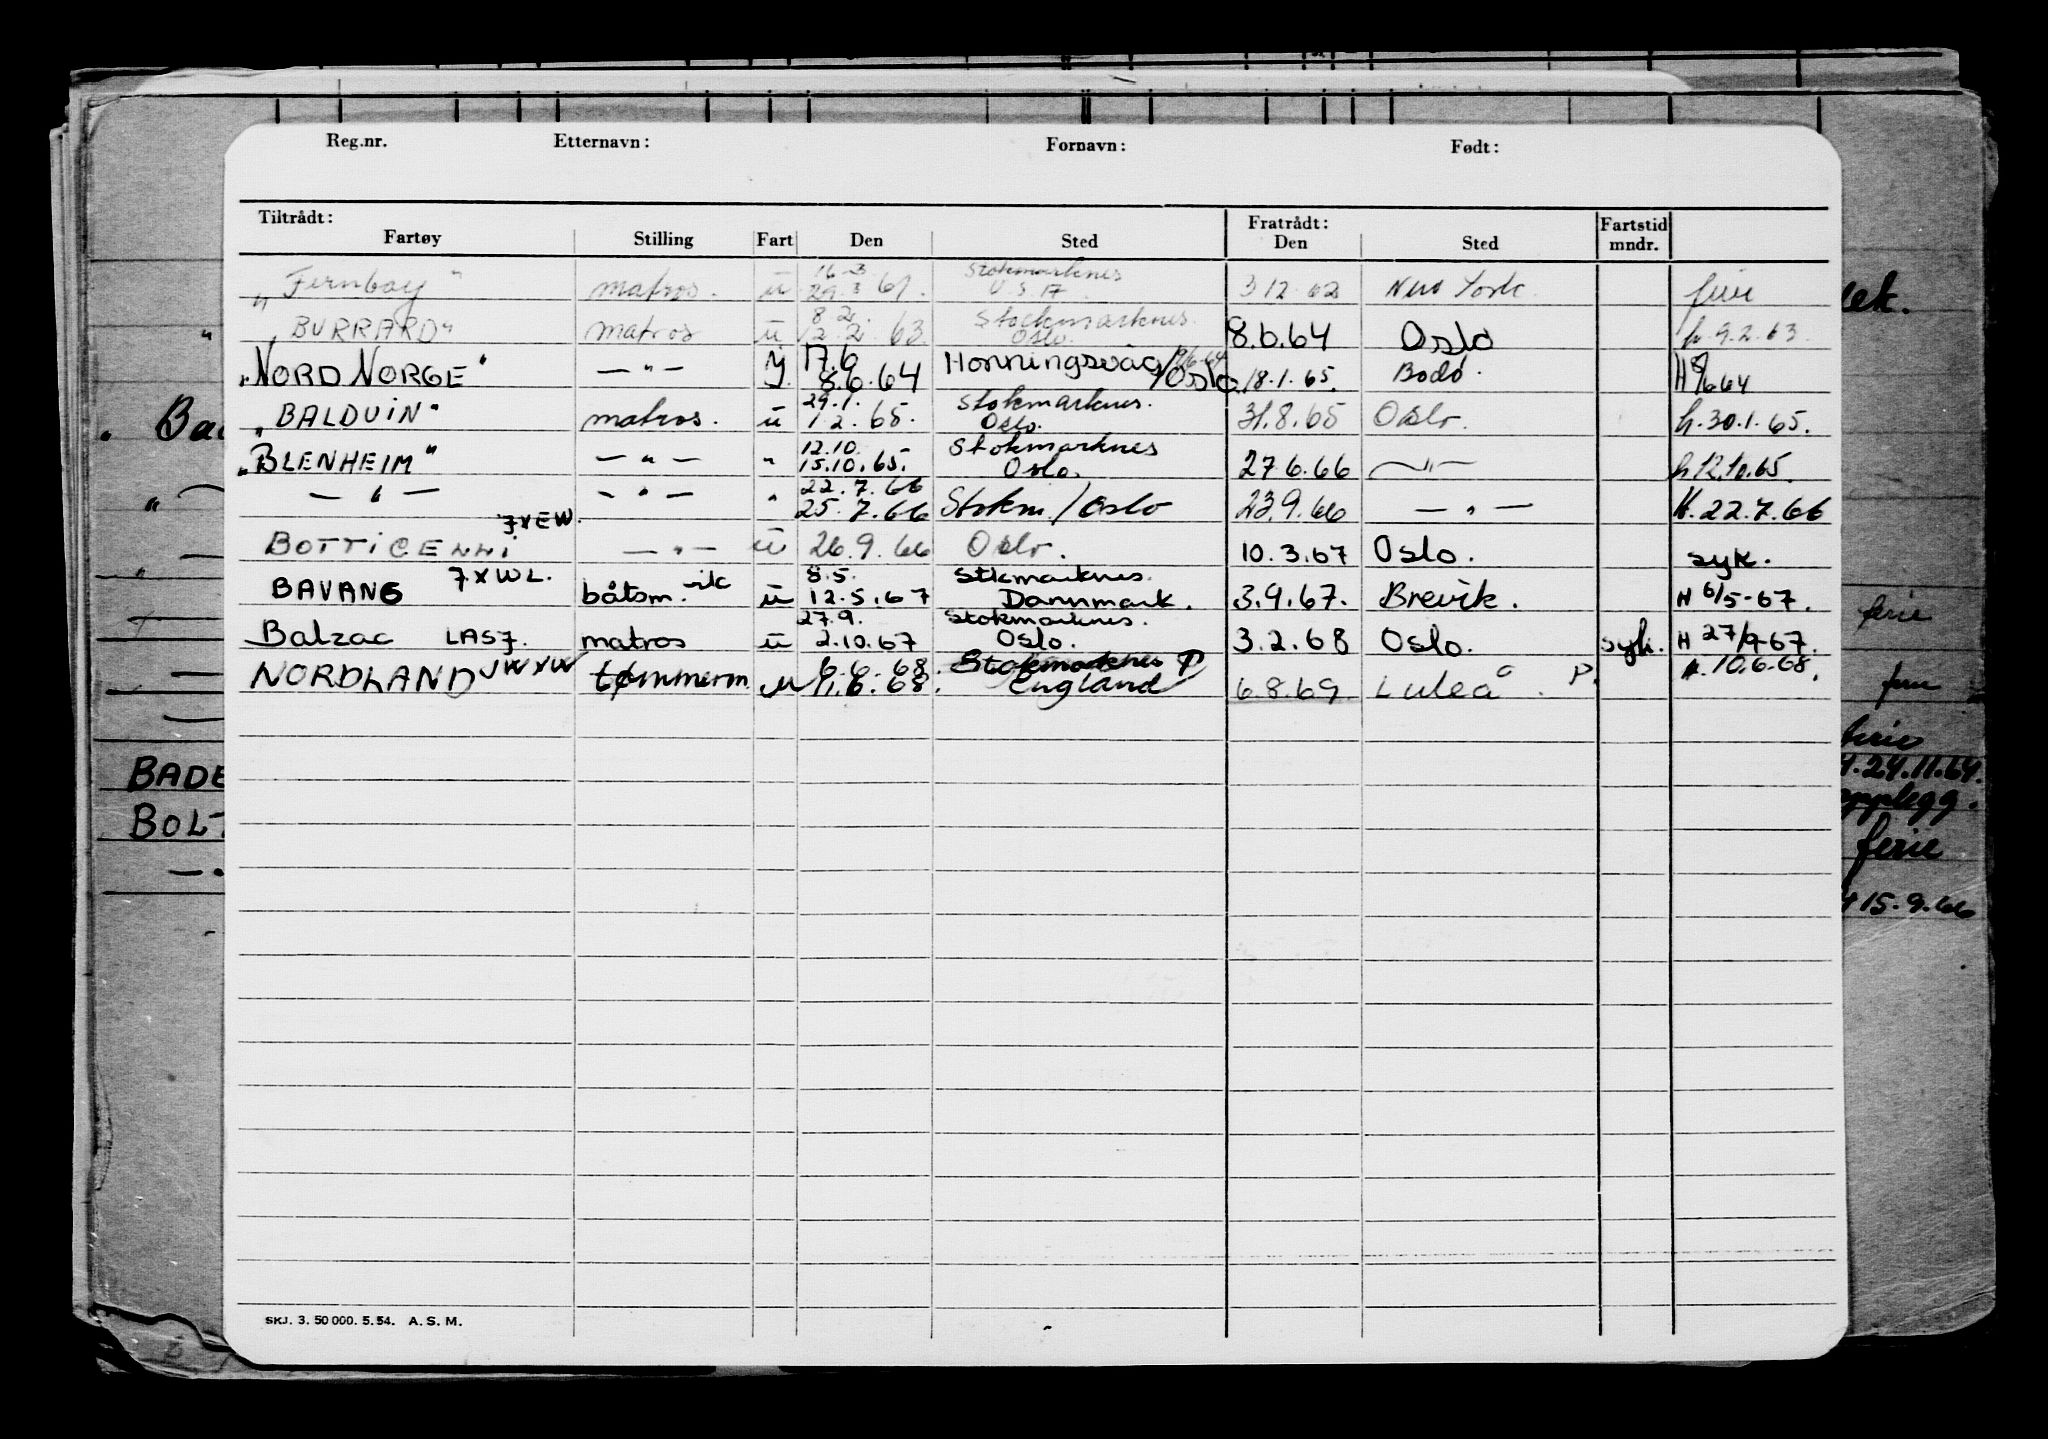 Reg.nr. Etternavn: Fornavn: Født:
Tiltrådt: Fratrådt: Fartstid
Fartøy Stilling Fart Den Sted Den Sted mndr.
16-3 Stokmarknes
"Fernbay" matros. u 29.3 61. U.S.17. 3 12.62 New York ferie
8 2. Stockmarknes.
"BURRARD" matros u 12.2.63 Oslo. 8.6.64 Oslo h.9.2.63
17.6 Honningsvåg
"NORD NORGE" — " — 8.6.64 /Oslo. 18.1.65. Bodø. H 8/6 64
29.1. Stokmarknes.
"BALDUIN" matros. u 1 2.65. Oslo. 31.8.65 Oslo. h.30.1.65.
12.10. Stokmarknes
"BLENHEIM" — " — " 15.10.65. Oslo. 27.6.66 — " — h 12.10.65.
22.7.66
— " — — " — " 25.7.66 Stokm./Oslo 23.9.66 — " — H.22.7.66
7XEW.
BOTTICELLI — " — u 26.9.66 Oslo. 10.3.67 Oslo. syk.
7XWL. 8.5. Stkmarknes.
BAVANG båtsm.-vik u 12.5.67 Dannmark. 3.9.67. Brevik. H 6/5-67.
27.9. Stokmarknes.
Balzac LASJ. matros u 2.10.67 Oslo. 3.2.68 Oslo. syk. H 27/9-67.
6.6.68. Stokmarknes P
NORDLAND JWXW tømmerm. u 11.6.68. England 6.8.69 Luleå. P. h.10.6.68.
lek.
ferie
ferie
BADE
24.11.64.
opplegg.
BOLT
ferie
15.9.66
SKJ. 3. 50 000. 5.54. A. S. M.